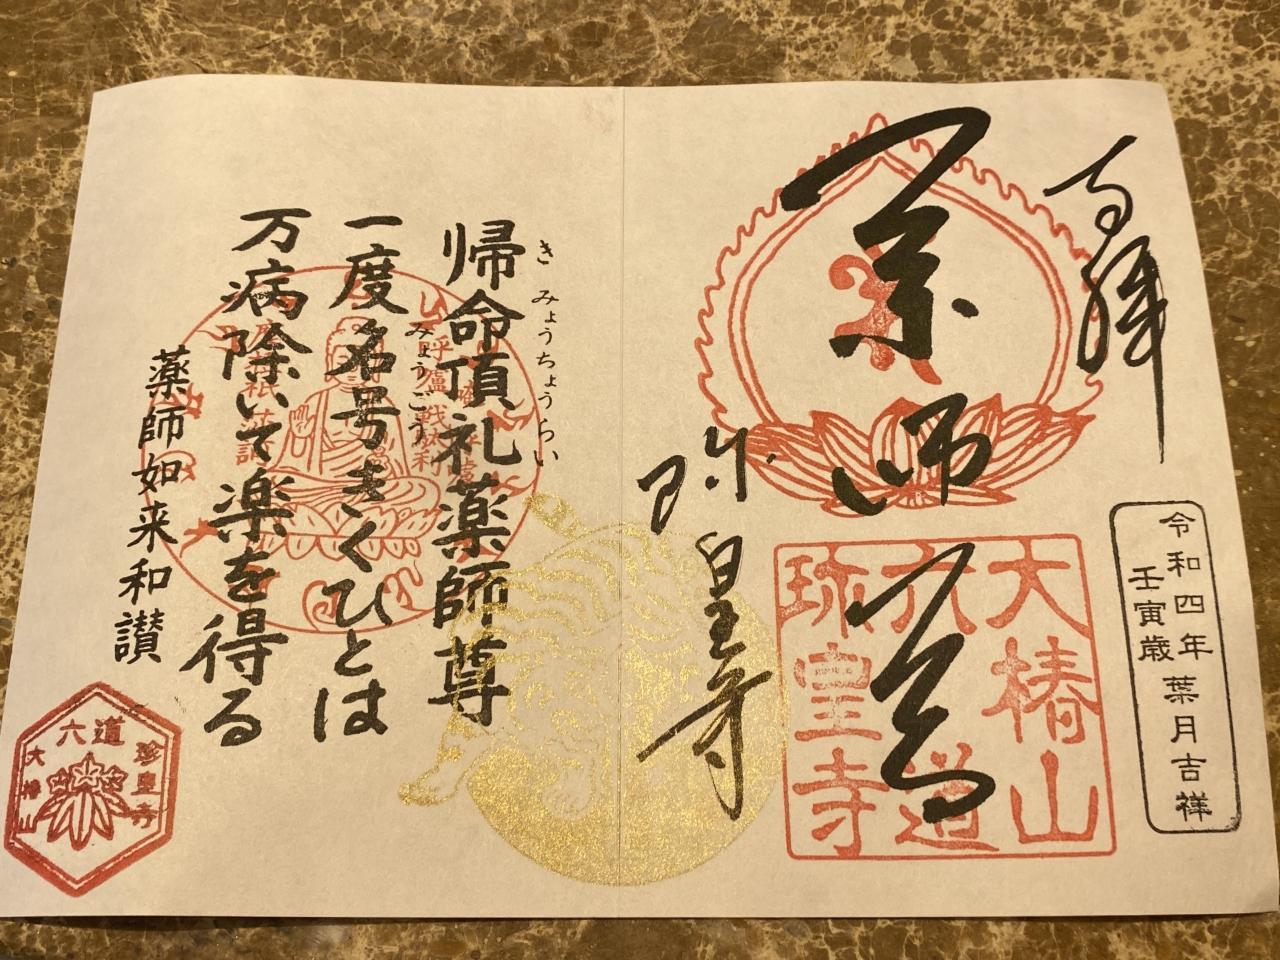 奉拝
薬師尊
珍皇寺
大椿山
六道
珎皇寺
令和四年 葉月吉祥
壬寅歳
帰命頂礼薬師尊
き みょうちょうらい
一度名号きくひとは
みょうごう
万病除いて楽を得る
薬師如来和讃
六道
珍皇寺
大椿山